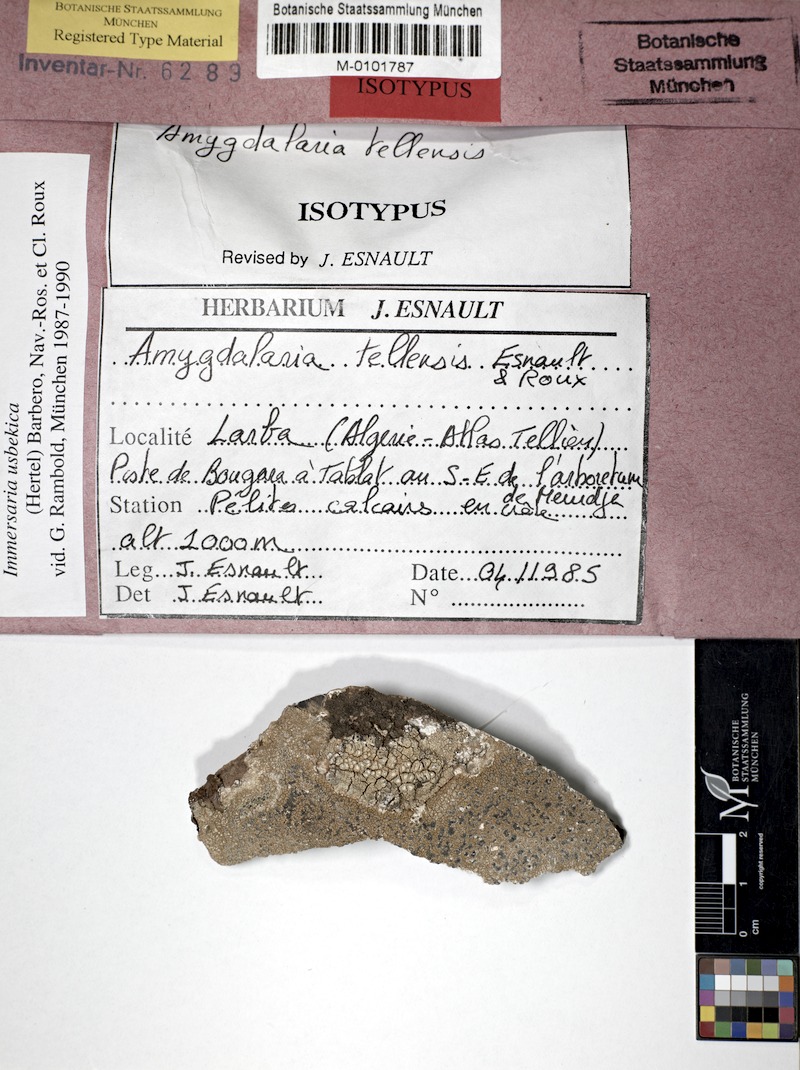 BOTANISCHE STAATSSAMMLUNG
MÜNCHEN
Registered Type Material
Inventar-Nr. 6289
Botanische Staatssammlung München
M-0101787
ISOTYPUS
Botanische
Staatssammlung
München
Amygdalaria tellensis
ISOTYPUS
Revised by J. ESNAULT
Immersaria usbekica
(Hertel) Barbero, Nav.-Ros. et Cl. Roux
vid. G. Rambold, München 1987-1990
HERBARIUM J. ESNAULT
Amygdalaria tellensis Esnault
& Roux
Localité Larba (Algerie - Atlas Tellien)
Piste de Bougara à Tablat au S-E de l'arboretum
de
Station Pelites calcaires en
alt 1000m
Leg J. Esnault Date 04.11.985
Det J. Esnault N°
BOTANISCHE
STAATSSAMMLUNG
MÜNCHEN
copyright reserved
0 1 2
cm